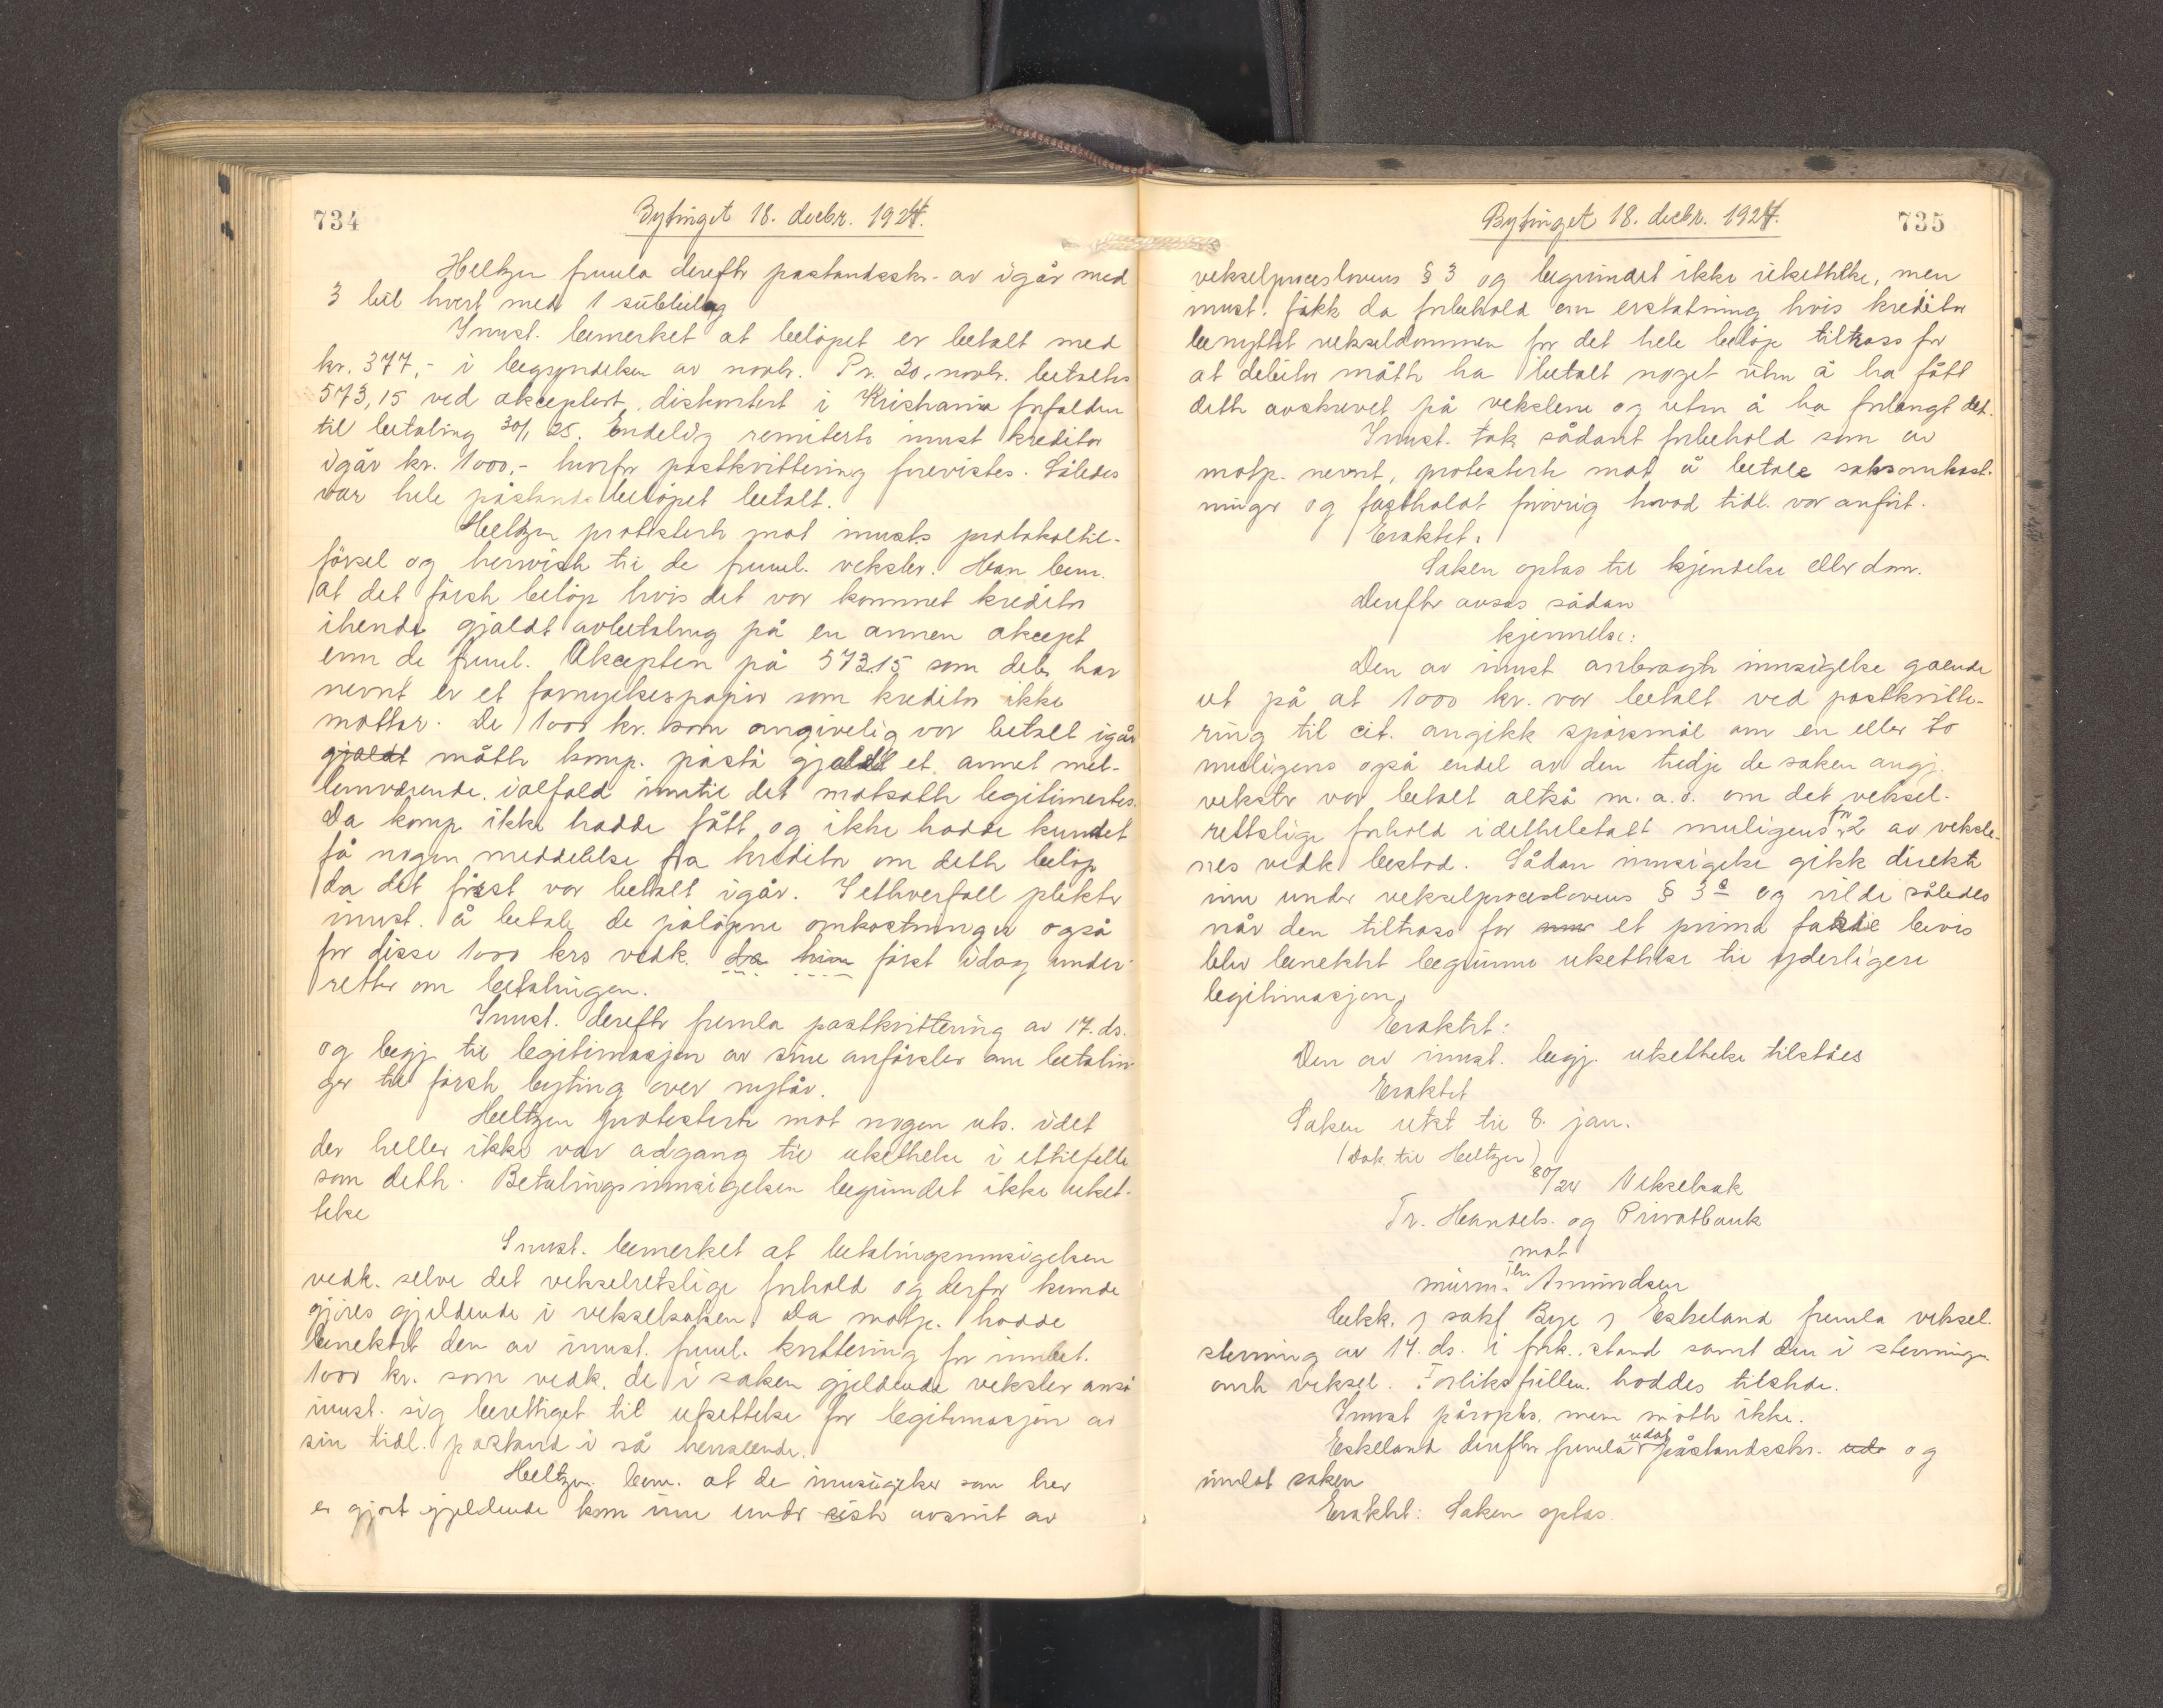 734
Bytinget 18. decbr. 1924.
Heltzen fremla derefter påstandsskr. av igår med
3 bil hvert med 1 subbilag
Innst. bemerket at beløpet er betalt med
kr. 377,- i begyndelsen av novbr. Pr. 20. novbr. betaltes
573,15 ved akceptert, diskontert i Kristiania forfalden
til betaling 30/1 25. Endelig remiterte innst kreditor
igår kr. 1000,- hvorfor postkvittering forevistes. Således
var hele påstandsbeløpet betalt.
Heltzen protesterte mot innsts protokoltil-
førsel og henviste til de freml. veksler. Han bem.
at det første beløp hvis det var kommet kreditor
ihende gjaldt avbetaling på en annen akcept
enn de freml. Akcepten på 573.15 som deb. har
nevnt er et fornyelsespapir som kreditor ikke
mottar. De 1000 kr. som angivelig var betalt igår
gjaldt måtte komp. påstå gjaldt et annet mel-
lemværende, ialfald inntil det motsatte legitimertes.
Da komp ikke hadde fått og ikke hadde kundet
få nogen meddelelse fra kreditor om dette beløp
da det først var betalt igår. I ethvertfall plikter
innst. å betale de påløpne omkostninger også
for disse 1000 krs vedk. da hun først idag under-
rettes om betalingen.
Innst. derefter fremla postkvittering av 17. ds.
og begj. til legitimasjon av sine anførsler om betalin-
ger til første byting over nytår.
Heltzen protesterte mot nogen uts. idet
der heller ikke var adgang til utsettelse i et tilfelle
som dette. Betalingsinnsigelsen begrundet ikke utset-
telse
Innst. bemerket at betalingsinnsigelsen
vedk. selve det vekselretslige forhold og derfor kunde
gjøres gjeldende i vekselsaken. Da motp. hadde
benektet den av innst. freml. kvittering for innbet.
1000 kr. som vedk. de i saken gjeldende veksler anså
innst. sig berettiget til utsettelse for legitimasjon av
sin tidl. påstand i så henseende.
Heltzen bem. at de innsigelser som her
er gjort gjeldende kom inn under siste avsnit av
Bytinget 18. decbr. 1924.
735
vekselproceslovens § 3 og begrundet ikke utsettelse, men
innst. fikk da forbehold om erstatning hvis kreditor
benyttet vekseldommen for det hele beløp tiltross for
at debitor måtte ha betalt noget uten å ha fått
dette avskrevet på vekslene og uten å ha forlangt det.
Innst. tok sådant forbehold som av
motp. nevnt, protesterte mot å betale saksomkost-
ninger og fastholdt forøvrig hvad tidl. var anført.
Eraktet:
Saken optas til kjendelse eller dom.
Derefter avsas sådan
kjennelse:
Den av innst anbragte innsigelse gående
ut på at 1000 kr. var betalt ved postkvitte-
ring til cit. angikk spørsmål om en eller to
muligens også endel av den tredje de saken angj.
veksler var betalt altså m. a. o. om det veksel-
rettslige forhold i det heletatt muligens for 2 av veksle-
nes vedk. bestod. Sådan innsigelse gikk direkte
inn under vekselproceslovens § 3 c og vilde således
når den tiltross for et prima facie bevis
blev benektet begrunne utsettelse til yderligere
legitimasjon.
Eraktet:
Den av innst. begj. utsettelse tilstedes
Eraktet
Saken utst til 8. jan.
(Dok til Heltzen)
80/24 Vekselsak
Tr. Handels- og Privatbank
mot
murm. Th. Amundsen
Eskeland fremla veksel-
stevning av 14. ds. i fork. stand samt den i stevningen
omh veksel. Forliksfullm. hoddes tilstede.
Innst påroptes, men møtte ikke.
Eskeland derefter fremla udat påstandsskr. udo og
innlot saken
Eraktet: Saken optas.